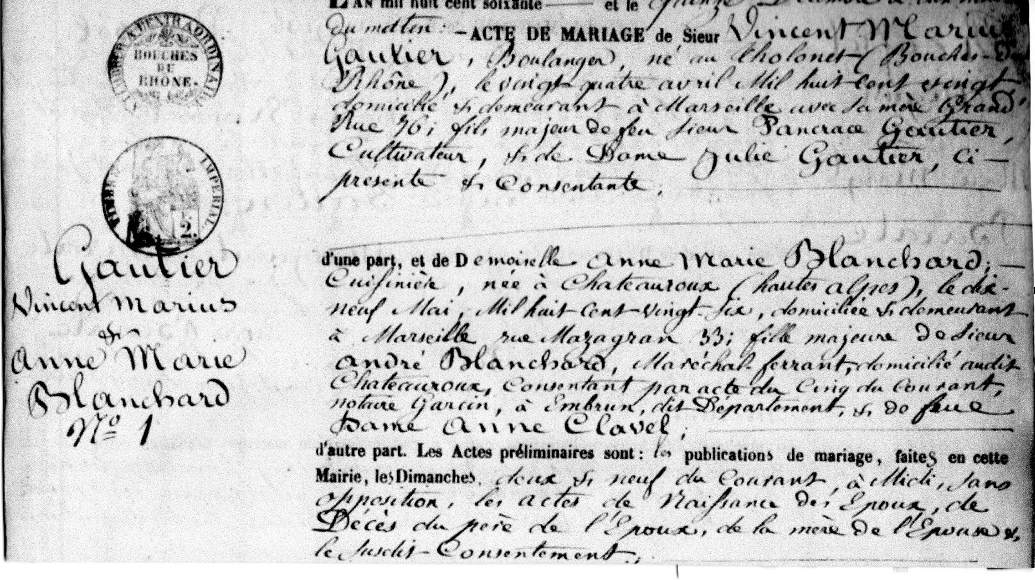 L'AN mil huit cent soixante — et le Quinze Décembre à
du matin: — ACTE DE MARIAGE de Sieur Vincent Marius
Gautier, Boulanger, né au Tholonet (Bouches-
Rhône), le vingt quatre avril Mil huit cent vingt
domicilié & demeurant à Marseille avec sa mère Grand
Rue 76; fils majeur de feu Sieur Pancrace Gautier,
Cultivateur, & de Dame Julie Gautier, ci-
presente & Consentante;
d'une part, et de Demoiselle Anne Marie Blanchard; —
Cuisinière, née à Chateauroux (hautes alpes), le dix-
neuf Mai, Mil huit Cent-vingt-six, domiciliée & demeurant
à Marseille rue Mazagran 33; fille majeure de Sieur
André Blanchard, Maréchal ferrant, domicilié audit
Chateauroux, Consentant par acte du Cinq du Courant,
notaire Garcin, à Embrun, dit Département, & de feue
Dame Anne Clavel;
d'autre part. Les Actes préliminaires sont: les publications de mariage, faites en cette
Mairie, les Dimanches, deux & neuf du Courant, à Midi, sans
opposition, les actes de Naissance des Epoux, de
Décès du père de l'Epoux, de la mère de l'Epouse &
le susdit Consentement;
TIMBRE EXTRAORDINAIRE
BOUCHES
DU
RHÔNE
TIMBRE IMPERIAL
2.
Gautier
Vincent Marius
&
Anne Marie
Blanchard
Nº 1